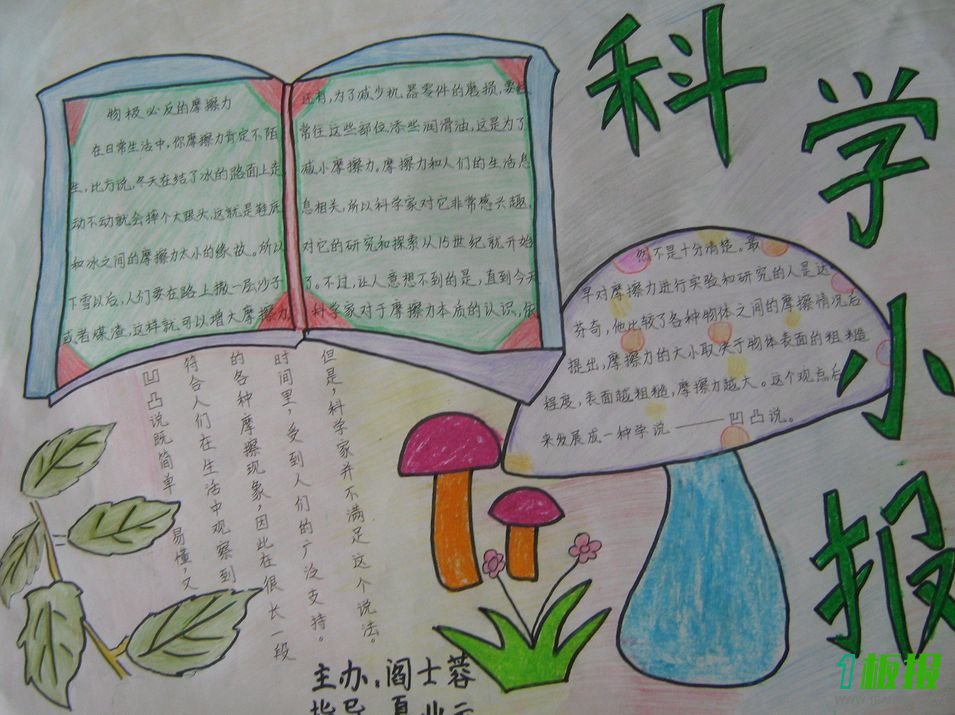 科学小报
物极必反的摩擦力
在日常生活中,你摩擦力肯定不陌
生,比方说,冬天在结了冰的路面上走,
动不动就会摔个大跟头,这就是鞋底
和冰之间的摩擦力太小的缘故。所以
下雪以后,人们要在路上撒一层沙子
或者煤渣,这样就可以增大摩擦力
还有,为了减少机器零件的磨损,要经
常往这些部位添些润滑油,这是为了
减小摩擦力。摩擦力和人们的生活息
息相关,所以科学家对它非常感兴趣,
对它的研究和探索从15世纪就开始
了。不过,让人意想不到的是,直到今天
科学家对于摩擦力本质的认识,依
然不是十分清楚。最
早对摩擦力进行实验和研究的人是达
芬奇,他比较了各种物体之间的摩擦情况后
提出,摩擦力的大小取决于物体表面的粗糙
程度,表面越粗糙,摩擦力越大。这个观点后
来发展成一种学说——凹凸说。
凹凸说既简单 易懂,又
符合人们在生活中观察到
的各种摩擦现象,因此在很长一段
时间里,受到人们的广泛支持。
但是,科学家并不满足这个说法。
主办.阎士蓉
指导
1板报